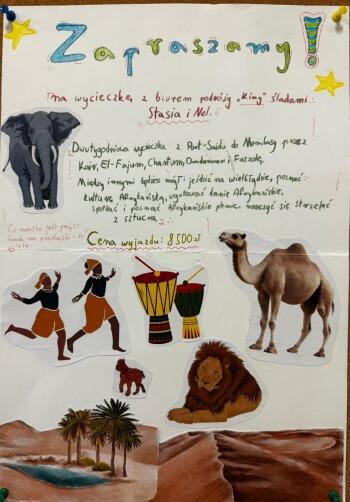 Zapraszamy!
na wycieczkę z biurem podróży „King” śladami
Stasia i Nel.
Dwutygodniowa wycieczka z Port-Saidu do Mombasy przez
Kair, El-Fajum, Chartum, Omdurman i Faszodę.
Między innymi będziesz mógł: jeździć na wielbłądzie, poznać
kulturę Afrykańską, ugotować danie Afrykańskie,
spotkać i poznać Afrykańskie plemię, nauczyć się strzelać
z
Cena wyjazdu: 8 500 zł
Co warto jest